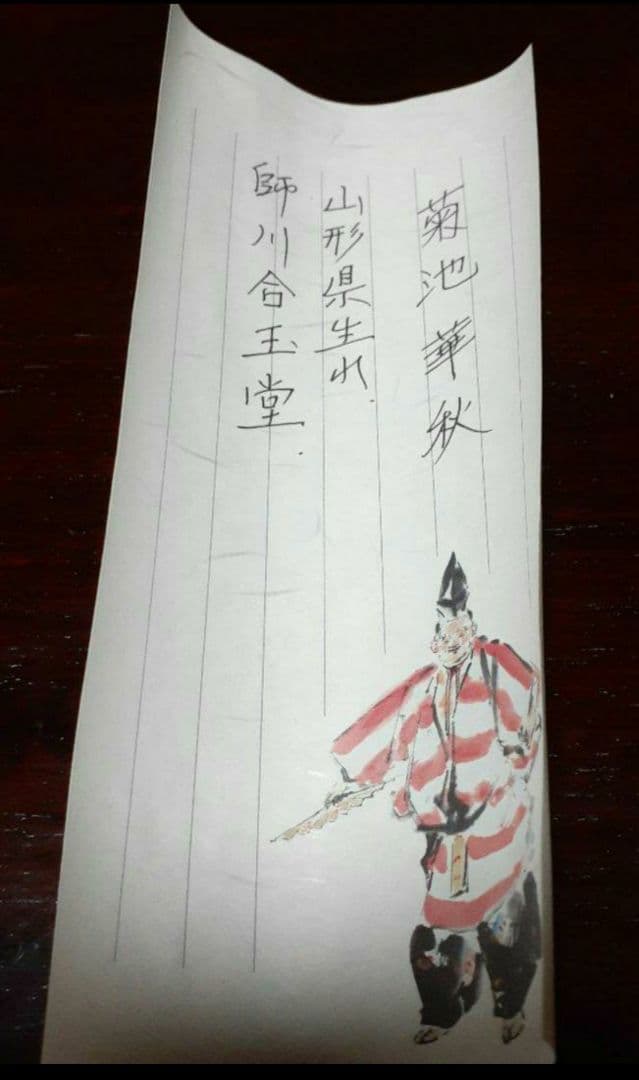 菊池華秋
山形県生れ.
師川合玉堂.